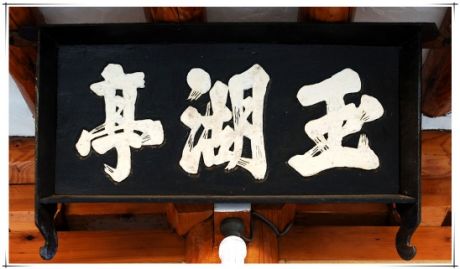 玉湖亭